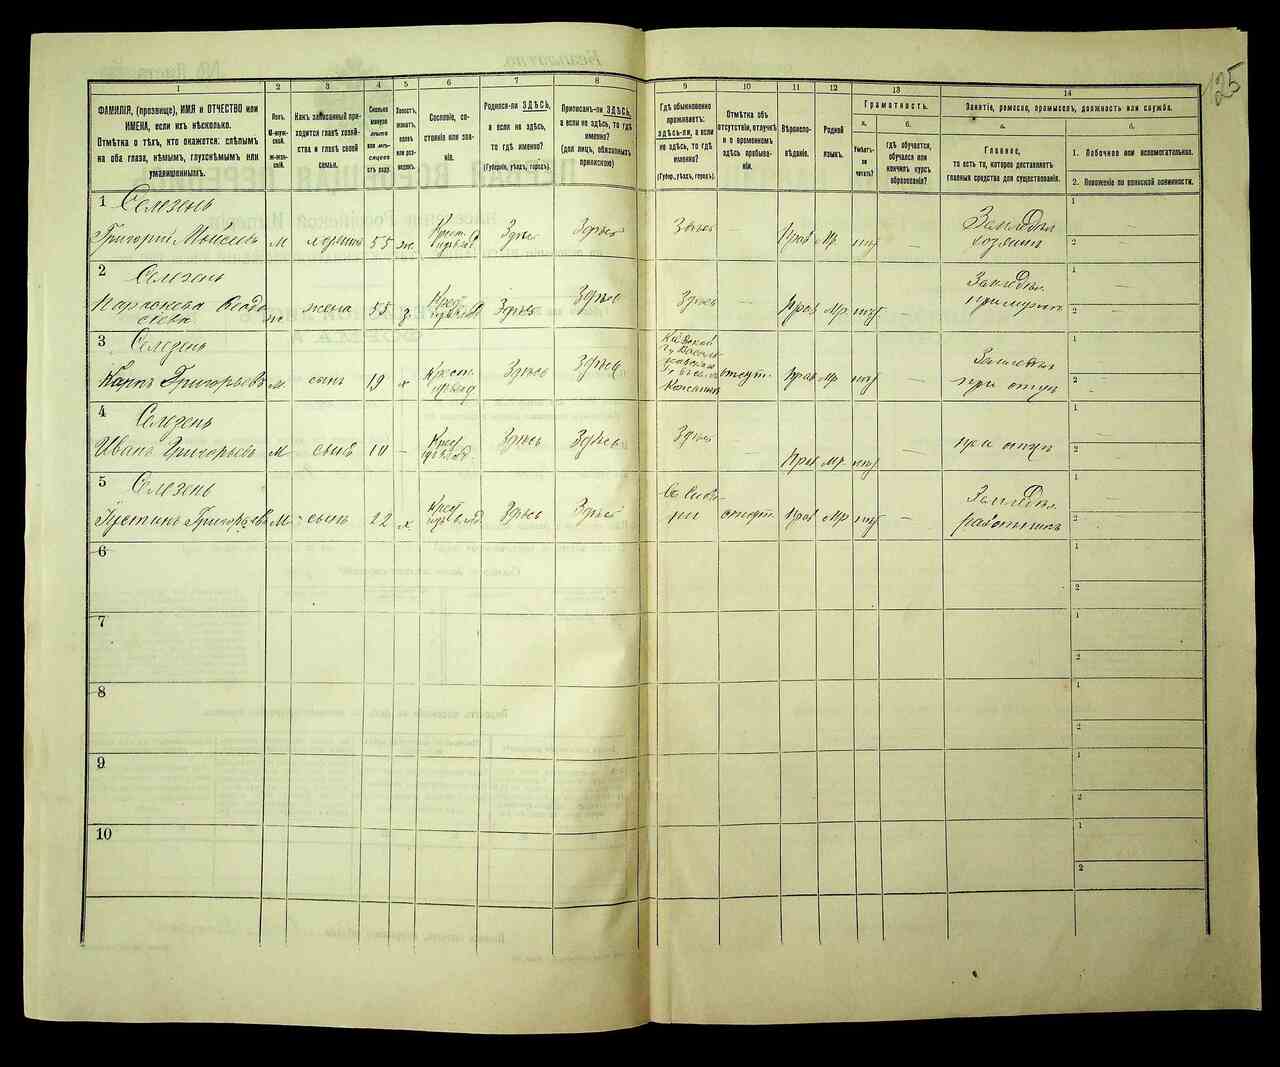 125
1
2
3
4
5
6
7
8
9
10
11
12
13
14
ФАМИЛІЯ, (прозвище), ИМЯ и ОТЧЕСТВО или
ИМЕНА, если ихъ нѣсколько.
Отмѣтка о тѣхъ, кто окажется: слѣпымъ
на оба глаза, нѣмымъ, глухонѣмымъ или
умалишеннымъ.
Полъ.
М-муж-
ской.
Ж-жен-
скій.
Какъ записанный при-
ходится главѣ хозяй-
ства и главѣ своей
семьи.
Сколько
минуло
лѣтъ
или мѣ-
сяцевъ
отъ роду.
Холостъ,
женатъ,
вдовъ
или раз-
веденъ.
Сословіе, со-
стояніе или зва-
ніе.
Родился-ли ЗДѢСЬ,
а если не здѣсь,
то гдѣ именно?
(Губернія, уѣздъ, городъ).
Приписанъ-ли ЗДѢСЬ,
а если не здѣсь, то гдѣ
именно?
(для лицъ, обязанныхъ
припискою)
Гдѣ обыкновенно
проживаетъ:
здѣсь-ли, а если
не здѣсь, то гдѣ
именно?
(Губер., уѣздъ, городъ).
Отмѣтка объ
отсутствіи, отлучкѣ
и о временномъ
здѣсь пребыва-
ніи.
Вѣроиспо-
вѣданіе.
Родной
языкъ.
Грамотность.
а.
б.
Умѣетъ-
ли
читать?
Гдѣ обучается,
обучался или
кончилъ курсъ
образованія?
Занятіе, ремесло, промыселъ, должность или служба.
а.
б.
Главное,
то есть то, которое доставляетъ
главныя средства для существованія.
1. Побочное или вспомогательное.
2. Положеніе по воинской повинности.
1 Селезень
Григорій Моисеевъ м 55 ж Здѣсь Здѣсь Здѣсь — Прав Мр — Земледѣл
хозяинъ
1
2
2 Селезень
ж жена 55 з Здѣсь Здѣсь Здѣсь — Прав Мр — Земледѣл
при мужѣ
1
2
3 Селезень
Карпъ Григорьевъ м сынъ 19 х Здѣсь Здѣсь отсут. Прав Мр — Земледѣл
при отцѣ
1
2
4 Селезень
Иванъ Григорьевъ м сынъ 10 — Здѣсь Здѣсь Здѣсь — Прав Мр — при отцѣ
1
2
5 Селезень
Григорьевъ м сынъ 22 х Здѣсь Здѣсь отсут. Прав Мр — Земледѣл
работникъ
1
2
6
1
2
7
1
2
8
1
2
9
1
2
10
1
2